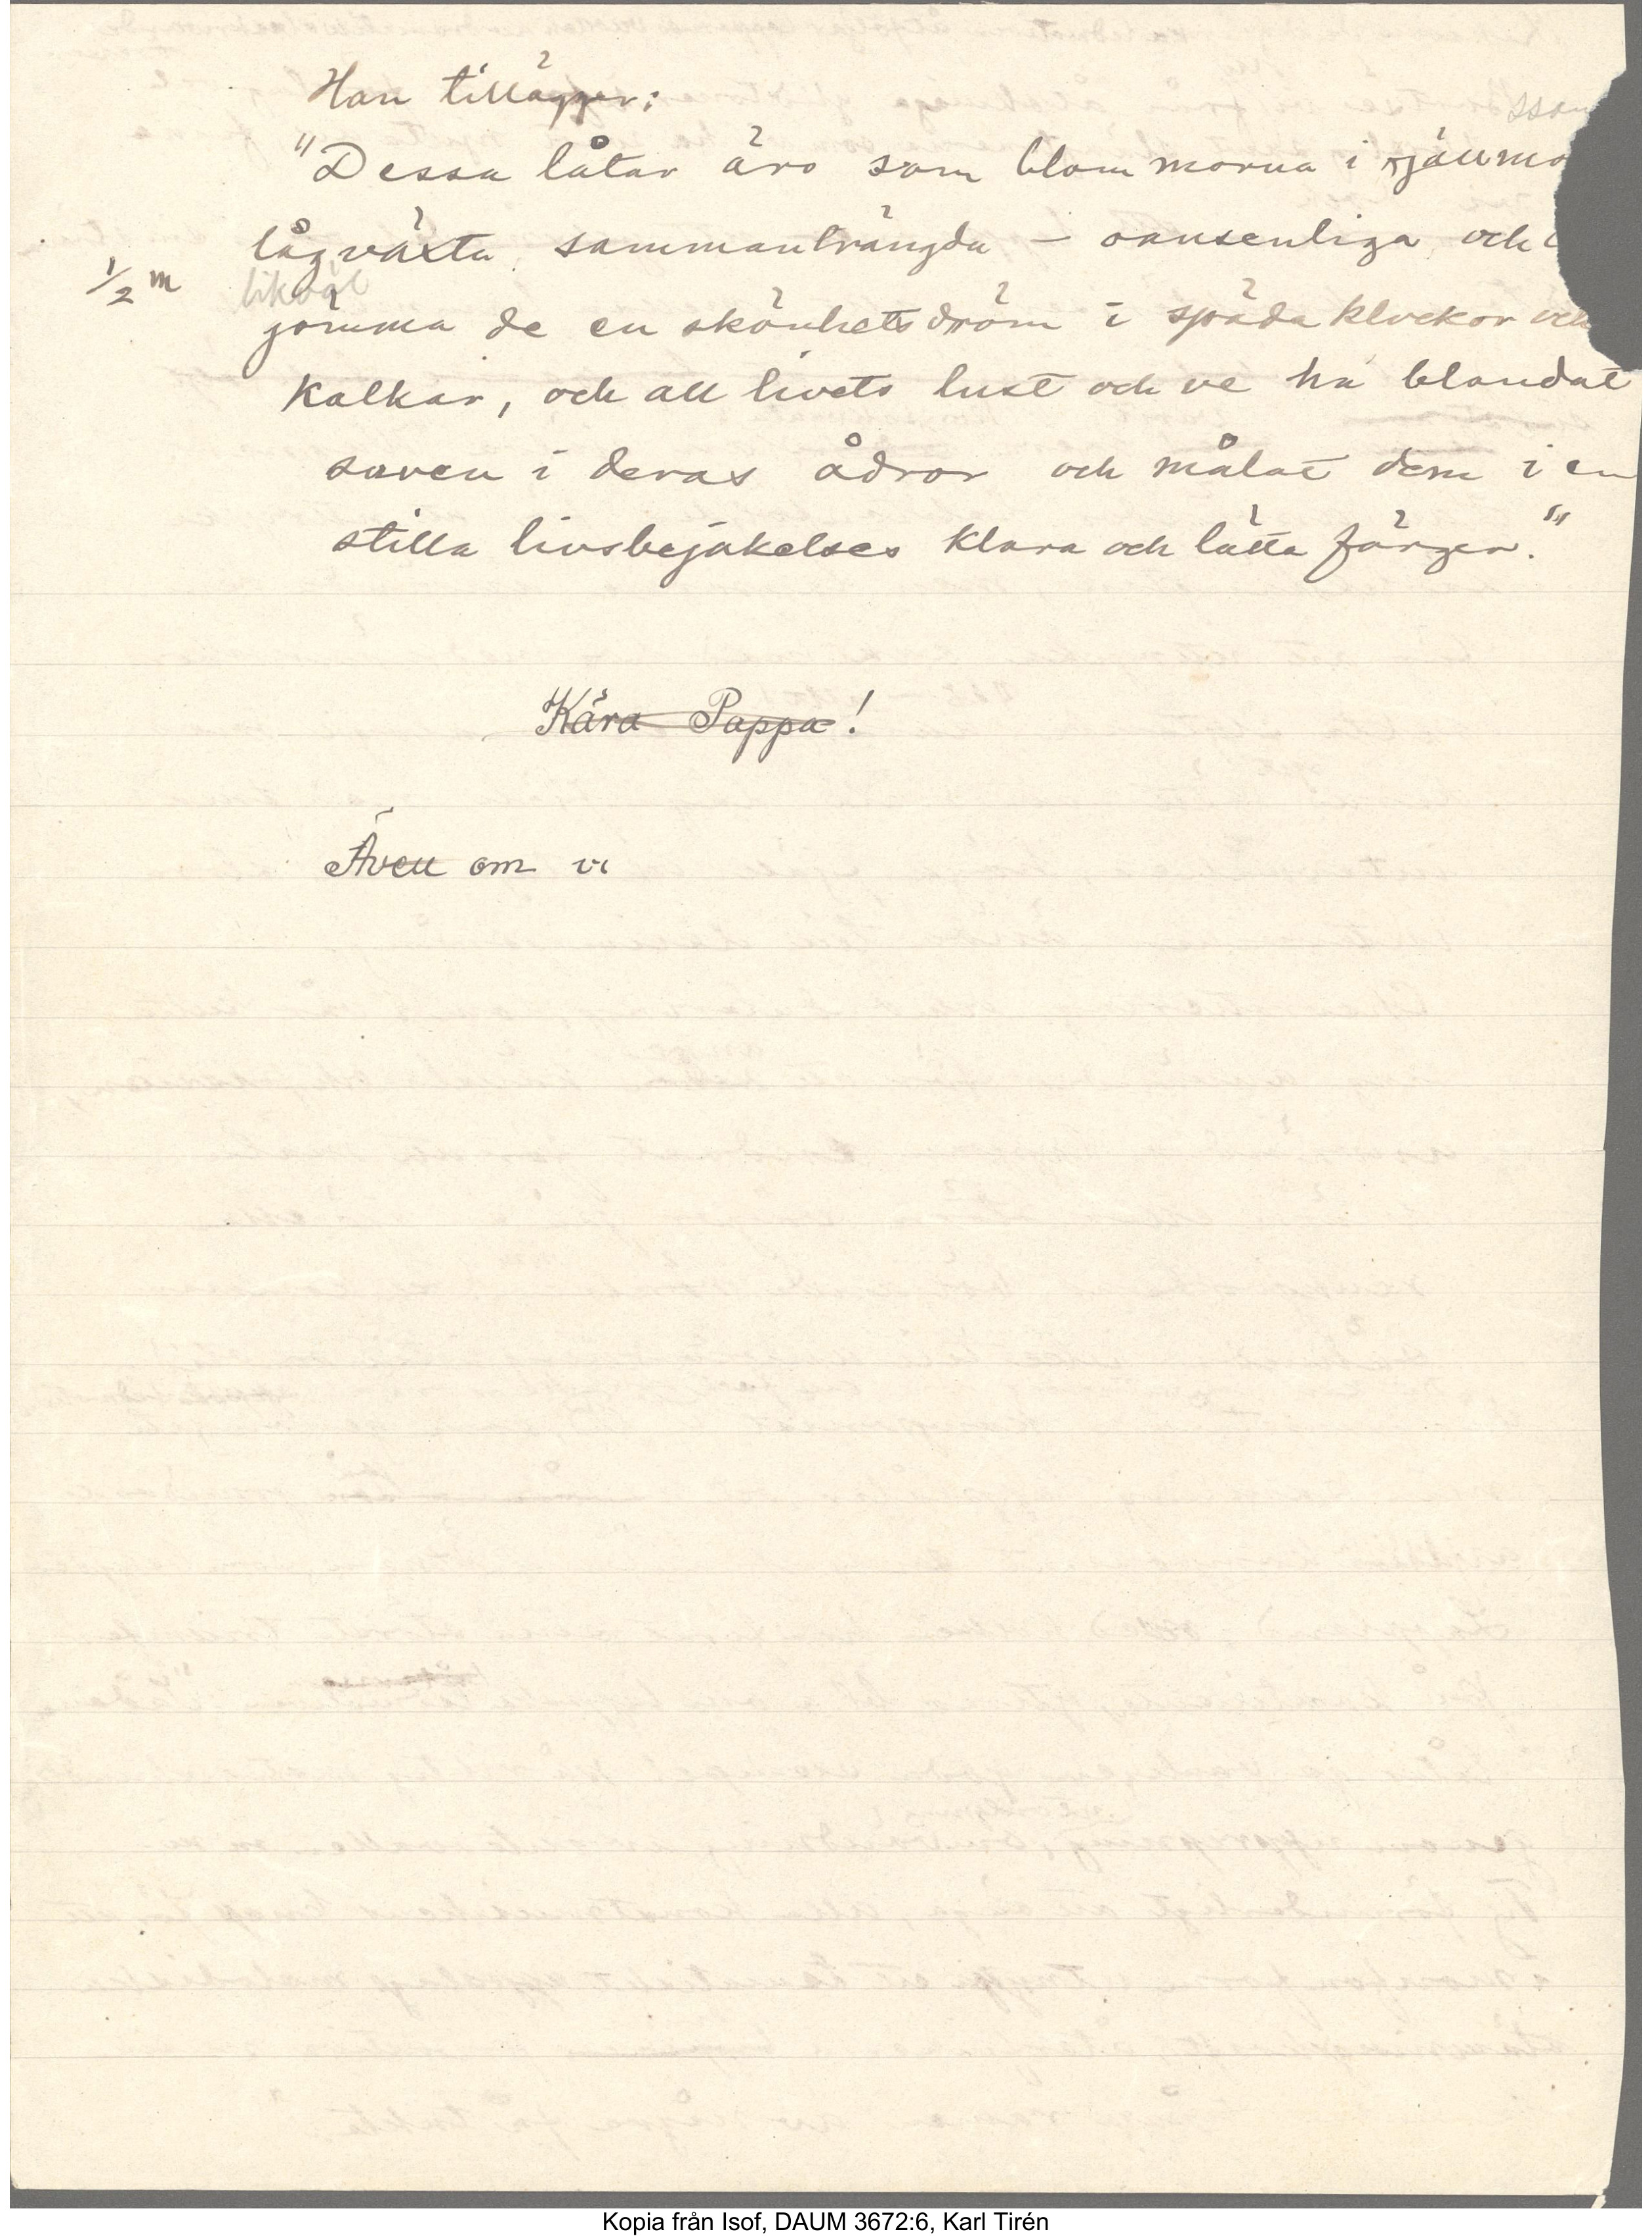 Han tillägger:
ssom
"Dessa låtar äro som blommorna i fjällmo
lågväxta, sammanträngda – oansenliga och
1/2 m
likväl
jömma de en skönhetsdröm i späda klockor och
kalkar, och all livets lust och ve ha blandat
saven i deras ådror och målat dem i en
stilla livsbejakelses klara och lätta färger."
Kära Pappa!
Även om vi
Kopia från Isof, DAUM 3672:6, Karl Tirén